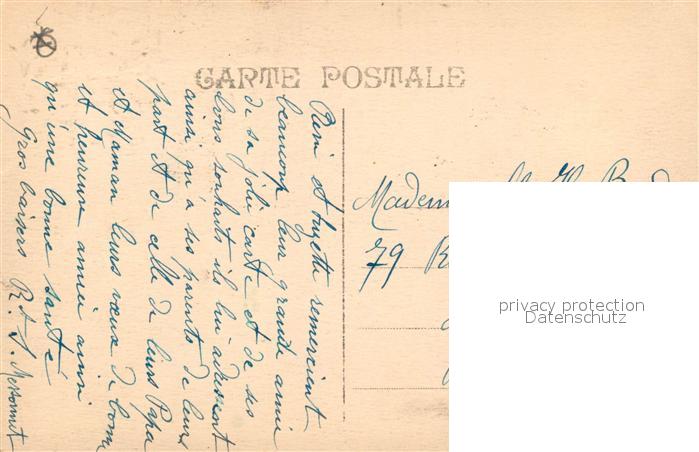 CARTE POSTALE
René et Suzette remercient
beaucoup leur grande amie
de sa jolie carte et de ses
bons souhaits ils lui adressent
ainsi qu'à ses parents de leur
part et de celle de leurs Papa
et Maman leurs vœux de bonne
et heureuse année ainsi
qu'une bonne santé
Gros baisers R. et S.
Madem
79
privacy protection
Datenschutz